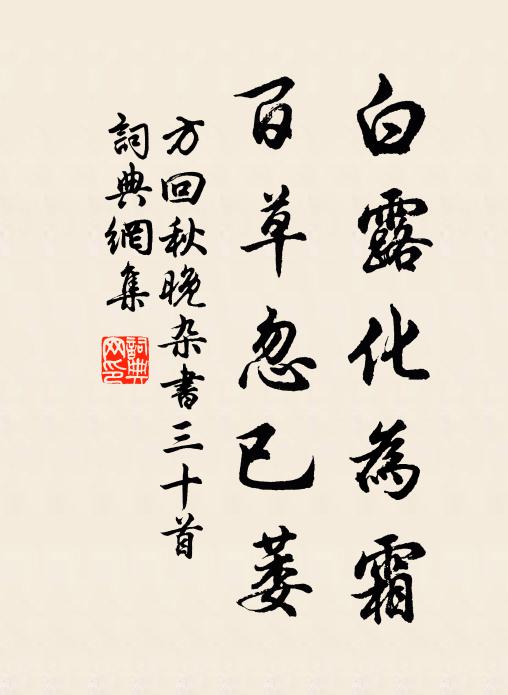 白露化為霜
百草忽已萎
方回秋晚杂書三十首
詞典網集
詞典網印